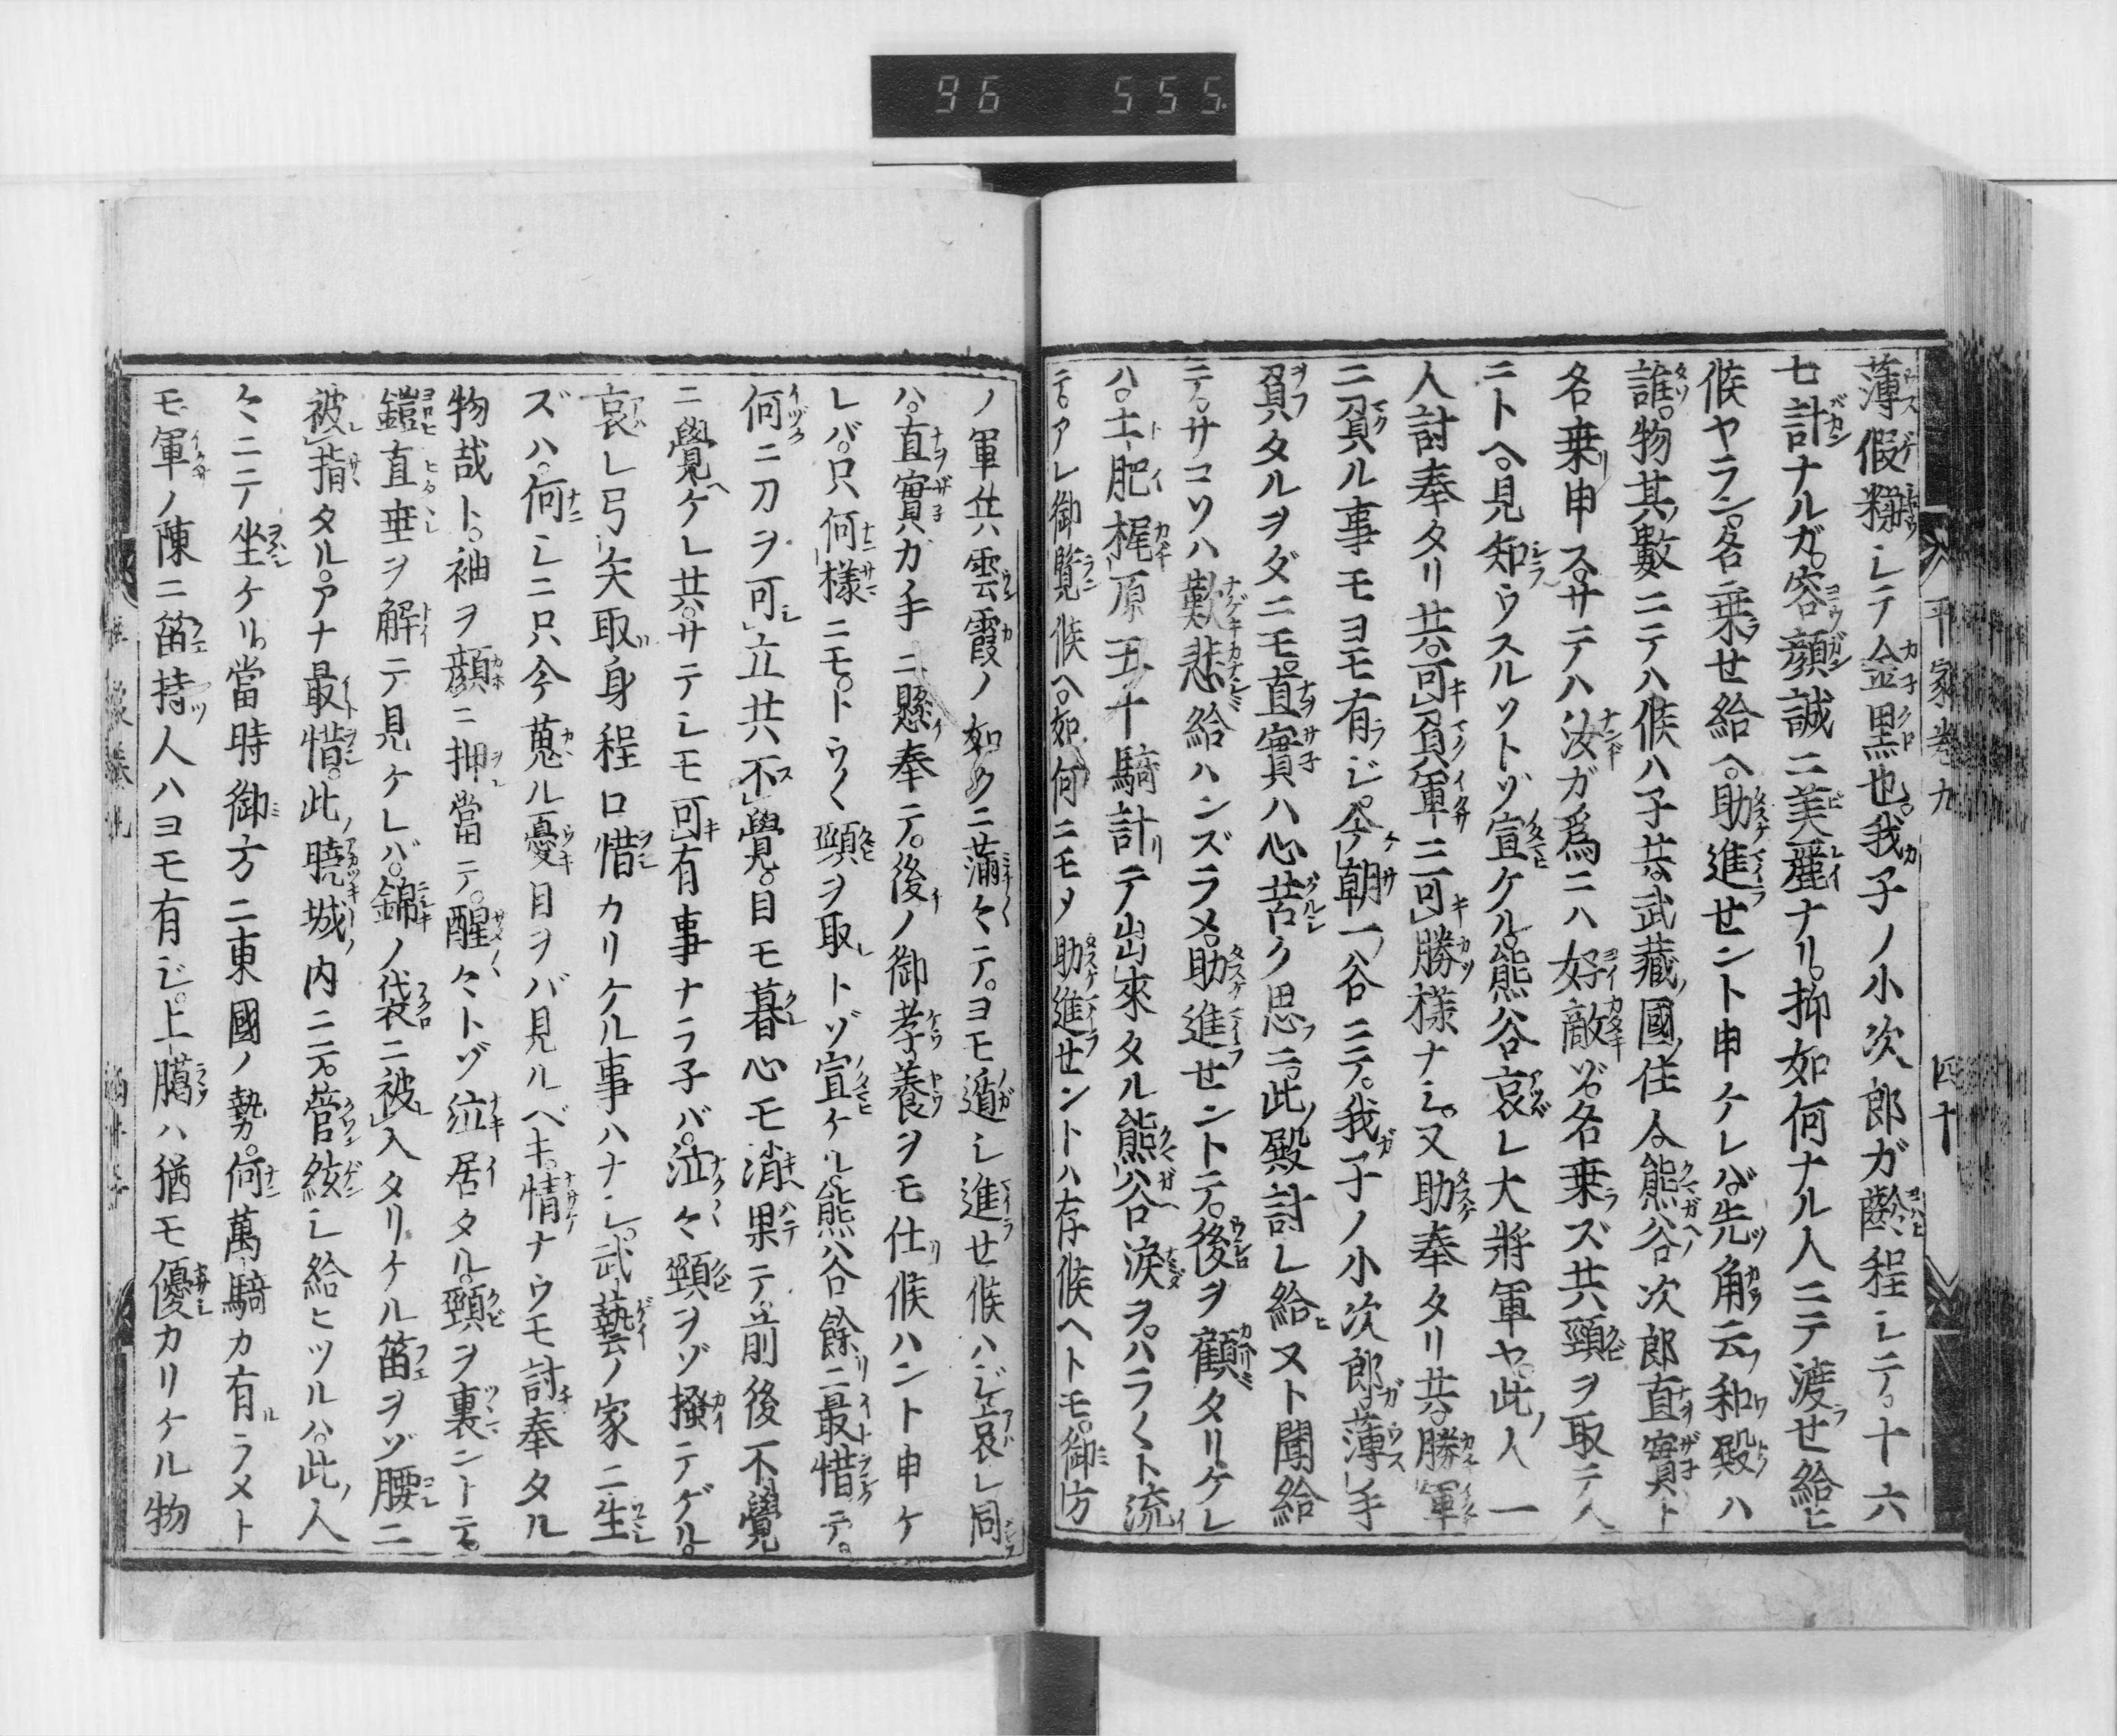 96 555
平家卷九 四十
薄假粧シテ金黒也。我子ノ小次郎ガ齡程シテ。十六
七計ナルガ。容顔誠ニ美麗ナリ。抑如何ナル人ニテ渡せ給ヒ
候ヤラン。名乗せ給ヘ。助進せント申ケレバ。先角云和殿ハ
誰。物其數ニテハ候ハ子共。武藏國住人。熊谷次郎直實ト
名乗申ス。サテハ汝ガ爲ニハ好敵ゾ。名乗ズ共頸ヲ取テ人
ニトヘ。見知ウスルソトゾ宣ケル。熊谷哀レ大將軍ヤ。此人一
人討奉タリ共。可負軍ニ可勝樣ナシ。又助奉タリ共。勝軍
ニ負ル事モヨモ有ジ。今朝一谷ニテ。我子ノ小次郎ガ薄手
負タルヲダニモ。直實ハ心苦ク思ニ。此殿討レ給ヌト聞給
テ。サコソハ歎悲給ハンズラメ。助進せントテ。後ヲ顧タリケレ
ハ。土肥梶原五十騎計テ出來タル熊谷涙ヲ。ハラ〱ト流
テ。アレ御覽候ヘ。如何ニモメ助進せントハ存候ヘトモ。御方
ノ軍兵雲霞ノ如クニ滿々テ。ヨモ遁シ進せ候ハジ。哀レ同
ハ。直實カ手ニ懸奉テ。後ノ御孝養ヲモ仕候ハント申ケ
レバ。只何樣ニモ。トウ〱頸ヲ取トゾ宣ケル。熊谷餘ニ最惜テ。
何ニ刀ヲ可立共不覺。目モ暮心モ消果テ。前後不覺
ニ覺ケレ共。サテシモ可有事ナラ子バ。泣々頸ヲゾ搔テゲル。
哀レ弓矢取身程口惜カリケル事ハナシ。武藝ノ家ニ生
ズハ。何シニ只今蒐ル憂目ヲバ見ルベキ。情ナウモ討奉タル
物哉ト。袖ヲ顔ニ押當テ。醒々トゾ泣居タル。頸ヲ裹ントテ。
鎧直垂ヲ解テ見ケレバ。錦ノ袋ニ被入タリケル笛ヲゾ腰ニ
被指タル。アナ最惜。此曉城内ニテ。管絃シ給ヒツルハ。此人
々ニテ坐ケリ。當時御方ニ東國ノ勢。何萬騎カ有ラメト
モ。軍ノ陳ニ笛持人ハヨモ有ジ。上臈ハ猶モ優カリケル物